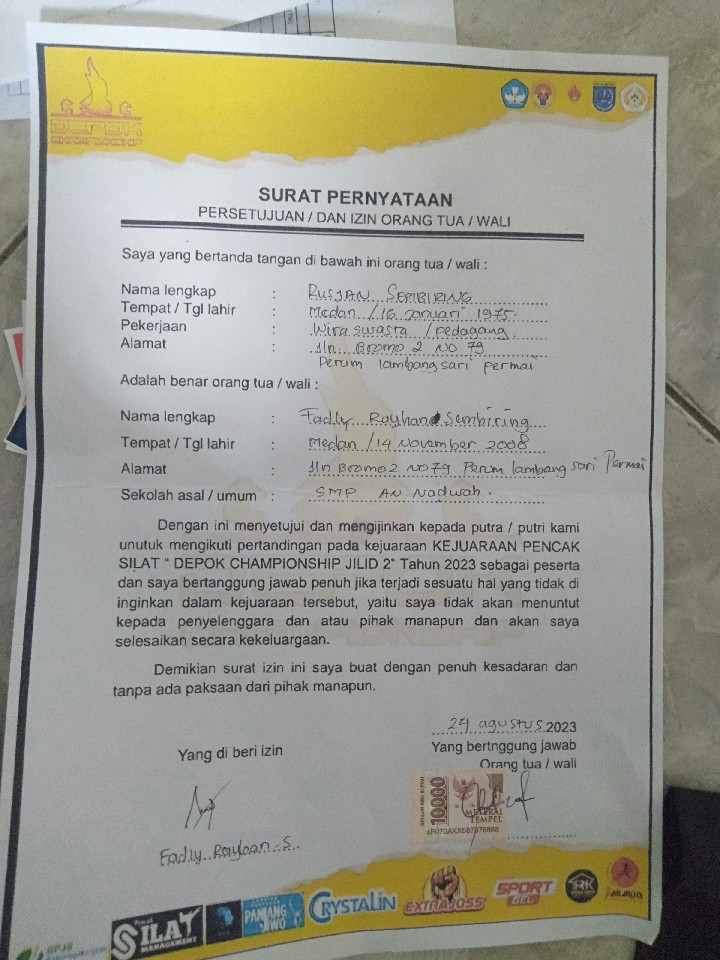 DEPOK
CHAMPIONSHIP
SURAT PERNYATAAN
PERSETUJUAN / DAN IZIN ORANG TUA / WALI
Saya yang bertanda tangan di bawah ini orang tua / wali :
Nama lengkap : RUSJAN SEMBIRING
Tempat / Tgl lahir : Medan / 16 Januari 1975.
Pekerjaan : Wira swasta / pedagang.
Alamat : Jln. Bromo 2 NO 79
Perum lambang sari permai
Adalah benar orang tua / wali :
Nama lengkap : Fadly Rayhan Sembiring
Tempat / Tgl lahir : Medan / 14 November 2008
Alamat : Jln Bromo 2 NO 79 Perum lambang sari Permai
Sekolah asal / umum : SMP AN Nadwah.
Dengan ini menyetujui dan mengijinkan kepada putra / putri kami
unutuk mengikuti pertandingan pada kejuaraan KEJUARAAN PENCAK
SILAT " DEPOK CHAMPIONSHIP JILID 2" Tahun 2023 sebagai peserta
dan saya bertanggung jawab penuh jika terjadi sesuatu hal yang tidak di
inginkan dalam kejuaraan tersebut, yaitu saya tidak akan menuntut
kepada penyelenggara dan atau pihak manapun dan akan saya
selesaikan secara kekeluargaan.
Demikian surat izin ini saya buat dengan penuh kesadaran dan
tanpa ada paksaan dari pihak manapun.
29 agustus 2023
Yang di beri izin
Yang bertnggung jawab
Orang tua / wali
10000
METERAI
TEMPEL
Fadly Rayhan. S.
BPJS
SILAT
MANAGEMENT
PANJANG
JIWO
CRYSTALIN
EXTRAJOSS
SPORT
GEL
RK